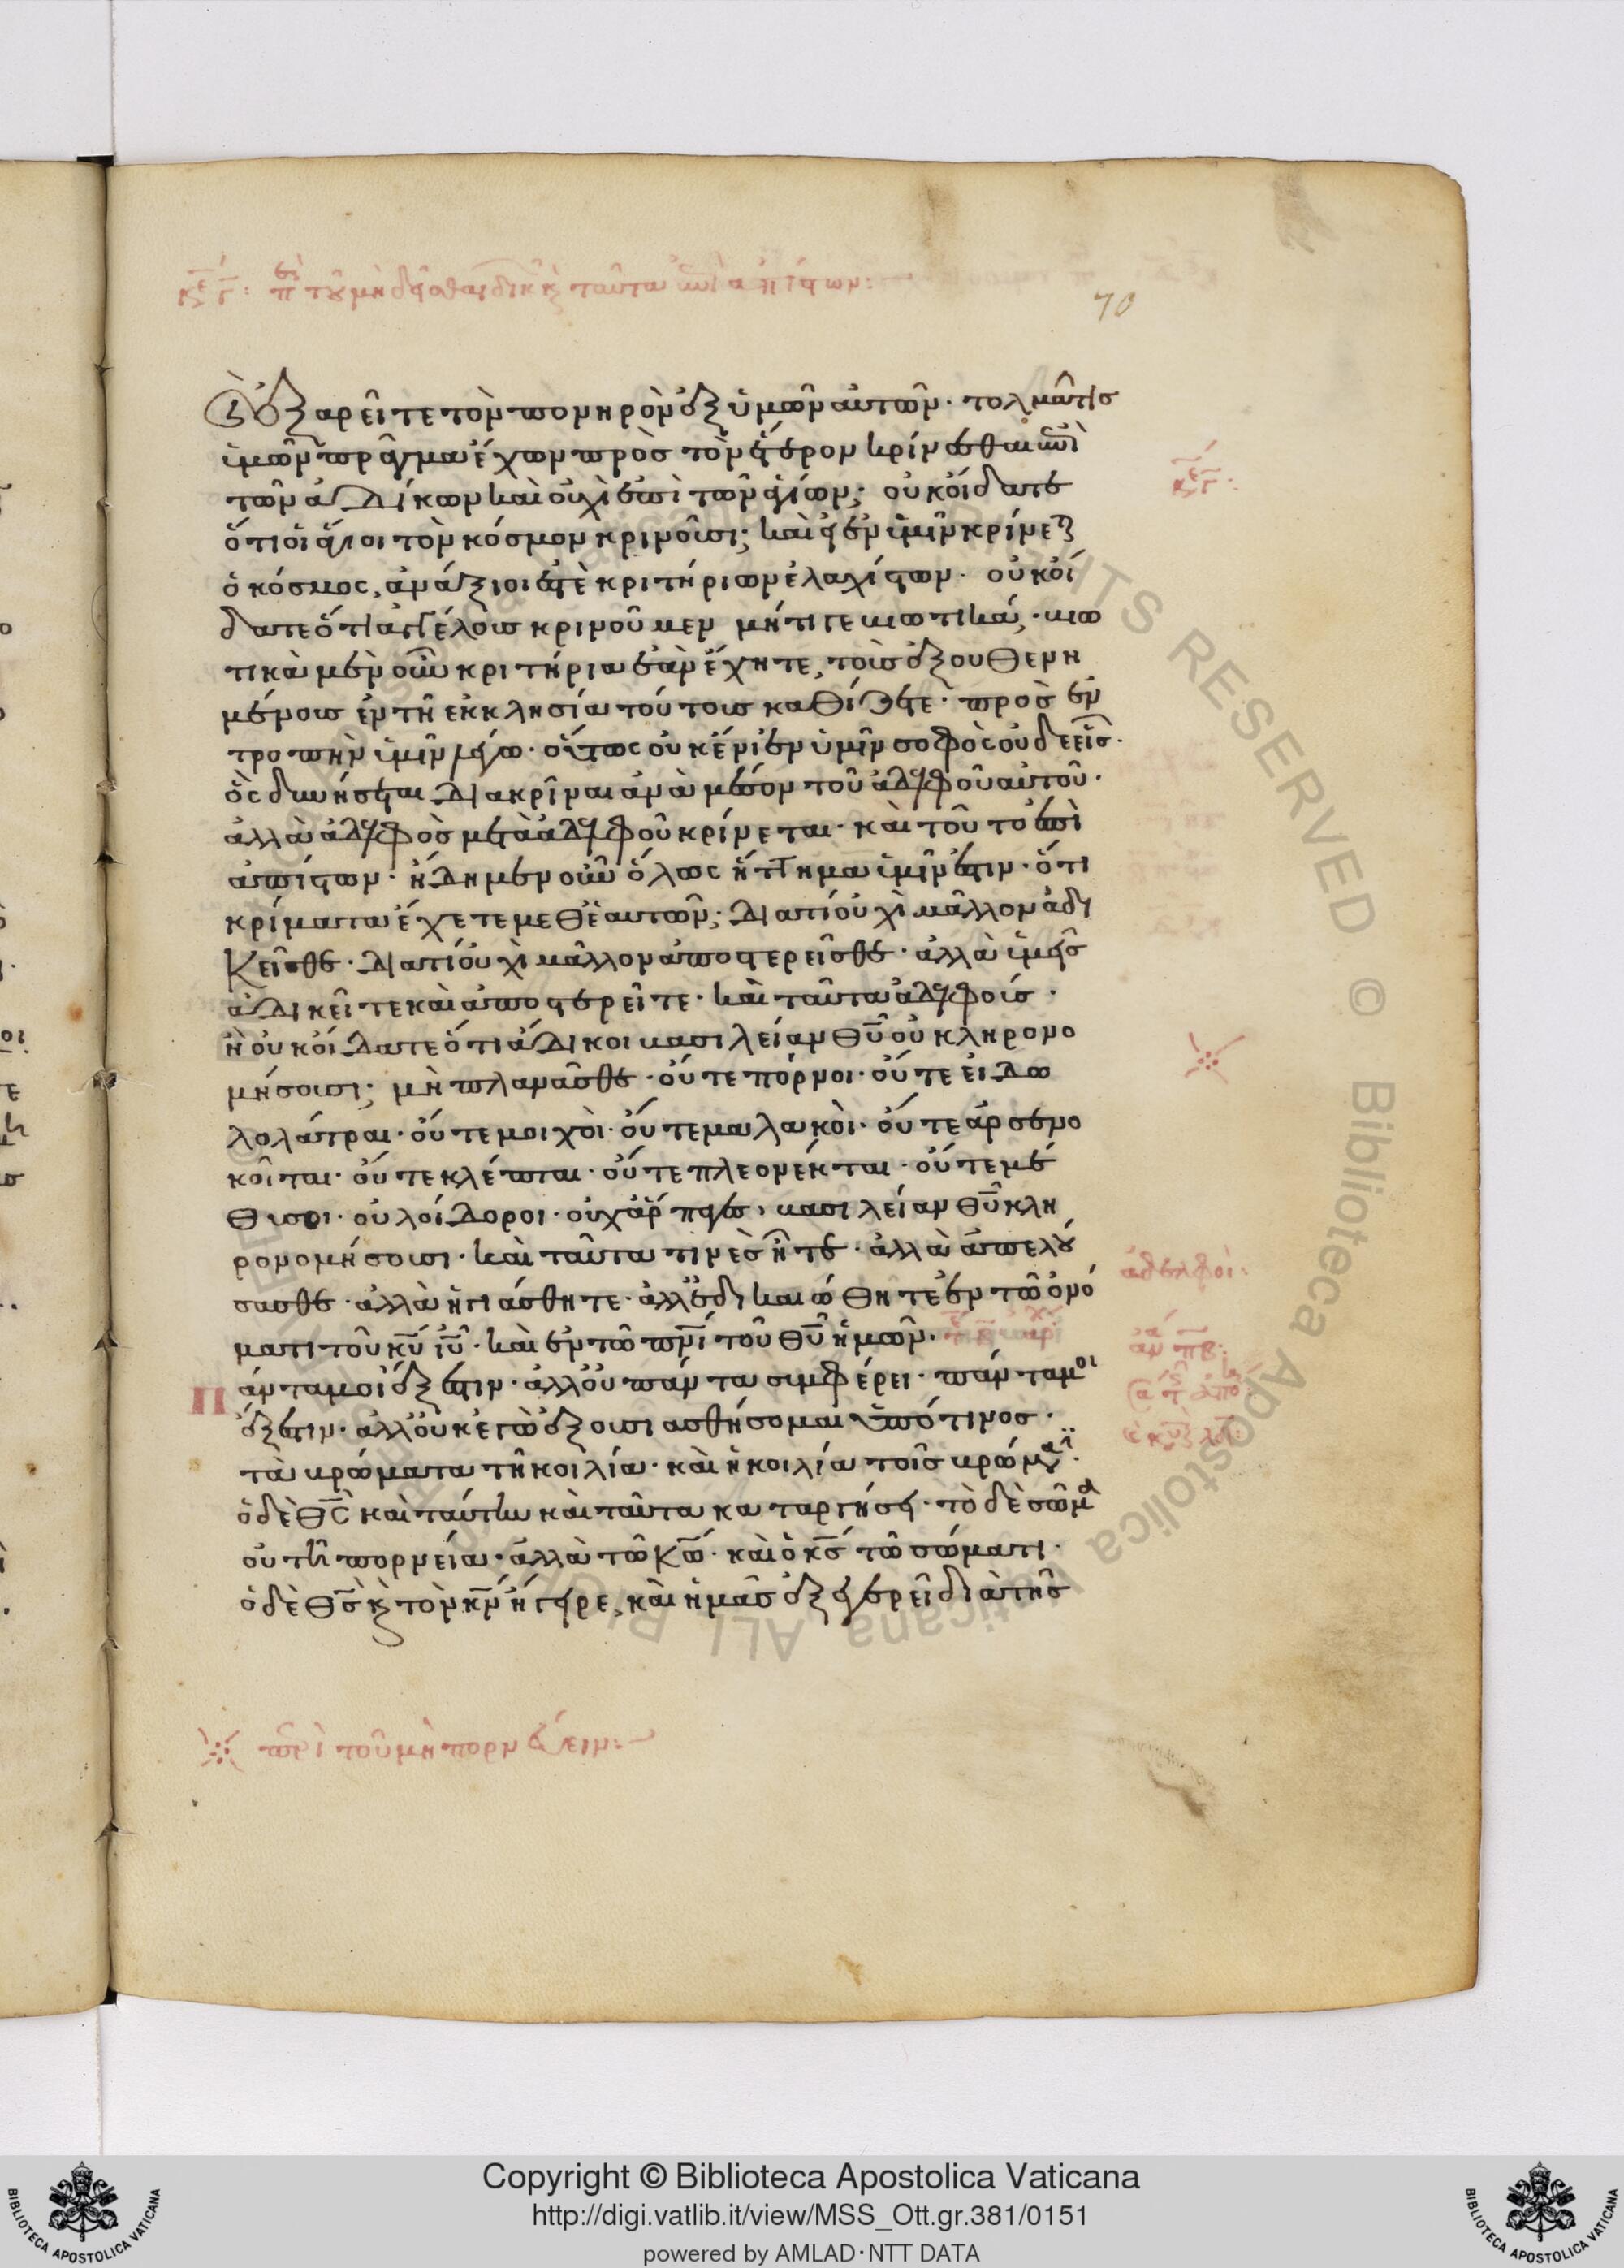 κε γ: περὶ τοῦ μὴ δεῖσθαι δίκης ταῦτα ἐπὶ ἀπίστων:
70
ἐξαρεῖτε τὸν πονηρὸν ἐξ ὑμῶν αὐτῶν· τολμᾶ τις
ὑμῶν πρᾶγμα ἔχων πρὸς τὸν ἕτερον κρίνεσθαι ἐπὶ
τῶν ἀδίκων καὶ οὐχὶ ἐπὶ τῶν ἁγίων; οὐκ οἴδατε
ὅτι οἱ ἅγιοι τὸν κόσμον κρινοῦσι; καὶ εἰ ἐν ὑμῖν κρίνεται
ὁ κόσμος, ἀνάξιοί ἐστε κριτηρίων ἐλαχίστων· οὐκ οἴ
δατε ὅτι ἀγγέλους κρινοῦμεν μήτι γε βιωτικά; βιω
τικὰ μὲν οὖν κριτήρια ἐὰν ἔχητε, τοὺς ἐξουθενη
μένους ἐν τῇ ἐκκλησία τούτους καθίζετε· πρὸς ἐν
τροπὴν ὑμῖν λέγω· οὕτως οὐκ ἔνι ἐν ὑμῖν σοφὸς οὐδεεῖς·
ὃς δυνήσεται διακρῖναι ἀνὰ μέσον τοῦ ἀδελφοῦ αὐτοῦ·
ἀλλὰ ἀδελφὸς μετὰ ἀδελφοῦ κρίνεται· καὶ τοῦτο ἐπὶ
ἀπίστων· ἤδη μὲν οὖν ὅλως ἥττημα ὑμῖν ἐστιν· ὅτι
κρίματα ἔχετε μεθ ἑαυτῶν; διατί οὐχὶ μᾶλλον ἀδι
κεῖσθε· διατί οὐχὶ μᾶλλον ἀποστερεῖσθε· ἀλλὰ ὑμεῖς
ἀδικεῖτε καὶ ἀποστερεῖτε· καὶ ταῦτα ἀδελφούς·
ἢ οὐκ οἴδατε ὅτι ἄδικοι βασιλείαν θυ οὐ κληρονο
μήσουσι; μὴ πλανᾶσθε· οὔτε πόρνοι· οὔτε εἰδω
λολάτραι· οὔτε μοιχοὶ· οὔτε μαλακοὶ· οὔτε ἀρσενο
κοῖται· οὔτε κλέπται· οὔτε πλεονέκται· οὔτε μέ
θυσοι· οὐ λοίδοροι· οὐχ ἅρπαγες· βασιλείαν θυ κλη
ρονομήσουσι· καὶ ταῦτα τινὲς ἦτε· ἀλλὰ ἀπελού
σασθε· ἀλλὰ ἡγιάσθητε· ἀλλ ἐδικαιώθητε ἐν τῶ ὀνό
ματι τοῦ κυ ιυ· καὶ ἐν τῶ πνι τοῦ θυ ἡμῶν·
Πάντα μοι ἔξεστιν· ἀλλ οὐ πάντα συμφέρει· πάντα μοι
ἔξεστιν· ἀλλ οὐκ ἐγὼ ἐξουσιασθήσομαι ὑπό τινος·
τὰ βρώματα τῆ κοιλία· καὶ ἡ κοιλία τοῖς βρώμασι·
ὁ δὲ θς καὶ ταύτην καὶ ταῦτα καταργήσει· τὸ δὲ σῶμα
οὐ τῆ πορνεία· ἀλλὰ τῶ κω· καὶ ὁ κς τῶ σώματι·
ὁ δὲ θς καὶ τὸν κν ἤγειρε, καὶ ἡμᾶς ἐξεγερεῖ διὰ τῆς
ἀδελφοί:
περὶ τοῦ μὴ πορνεύειν:
Copyright © Biblioteca Apostolica Vaticana
http://digi.vatlib.it/view/MSS_Ott.gr.381/0151
powered by AMLAD·NTT DATA